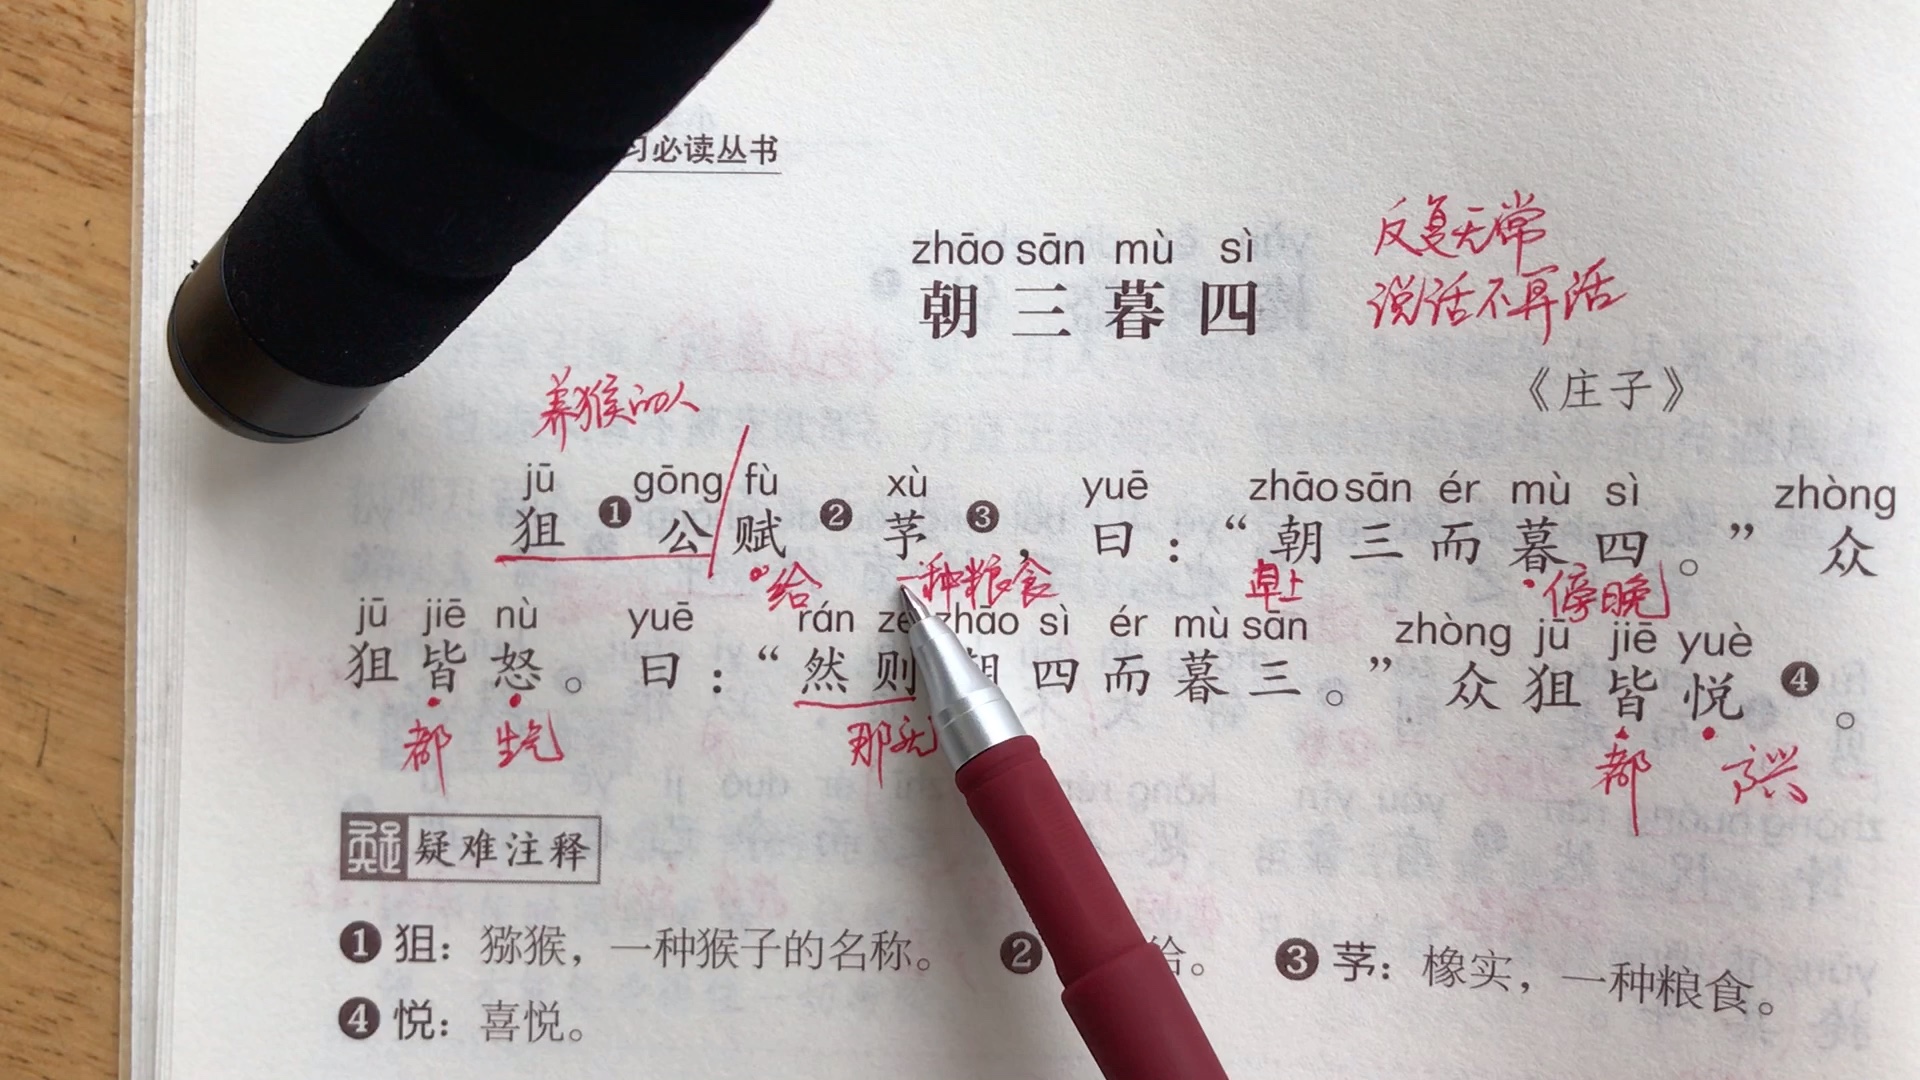 习必读丛书
zhāo sān mù sì
朝三暮四
反复无常
说话不算话
《庄子》
养猴的人
jū gōng fù xù yuē zhāo sān ér mù sì zhòng
狙❶公赋❷芧❸，曰：“朝三而暮四。”众
给 一种粮食 早上 傍晚
jū jiē nù yuē rán zé zhāo sì ér mù sān zhòng jū jiē yuè
狙皆怒。曰：“然则朝四而暮三。”众狙皆悦❹。
都 生气 那就 都 高兴
疑 疑难注释
❶ 狙：猕猴，一种猴子的名称。 ❷ 给。 ❸ 芧：橡实，一种粮食。
❹ 悦：喜悦。